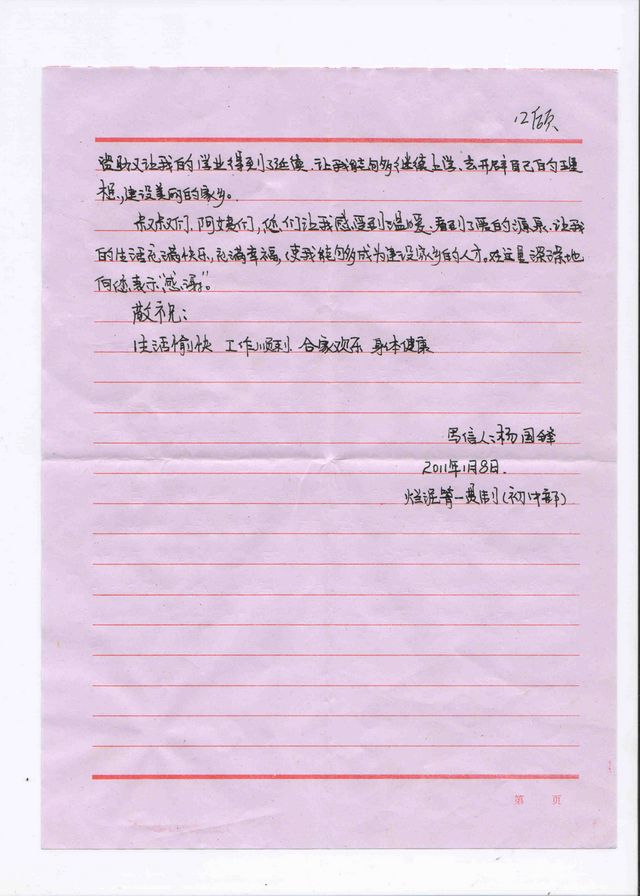 12页
资助又让我的学业得到了延续,让我能向够继续上学,去开辟自己的理
想,建设美丽的家乡。
叔叔们,阿姨们,你们让我感受到温暖,看到了爱的源泉,让我
的生活充满快乐,充满幸福,使我能向够成为建设家乡的人才。在这里深深地
向您表示“感谢”。
敬祝:
生活愉快 工作顺利 合家欢乐 身体健康
写信人:杨国锋
2011年1月8日.
烂泥第一费制(初中部)
第 页